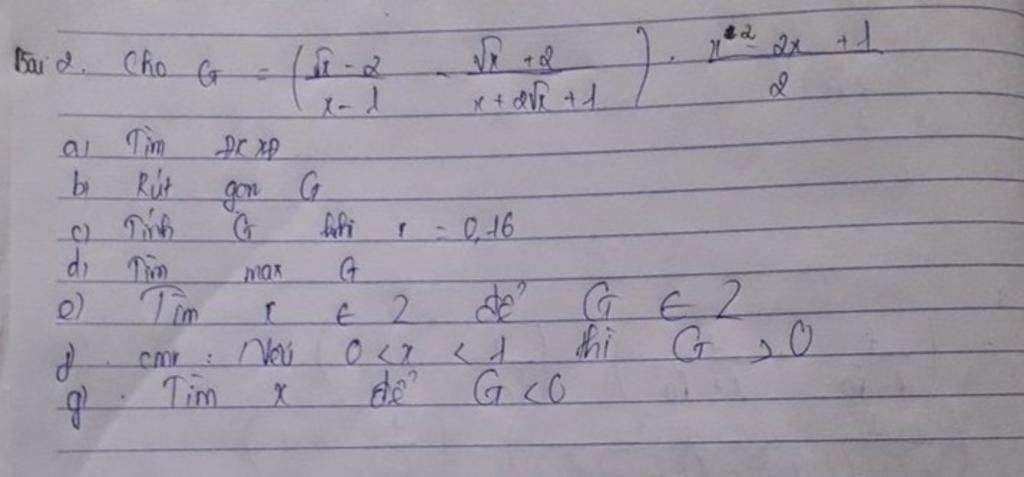 Bài 2. Cho G = (√x - 2 / x - 1 - √x + 2 / x + 2√x + 1) . x² - 2x + 1 / 2
a) Tìm ĐKXĐ
b) Rút gọn G
c) Tính G khi x = 0,16
d) Tìm max G
e) Tìm x ∈ Z để G ∈ Z
f) cmr : Nếu 0 < x < 1 thì G > 0
g) Tìm x để G < 0